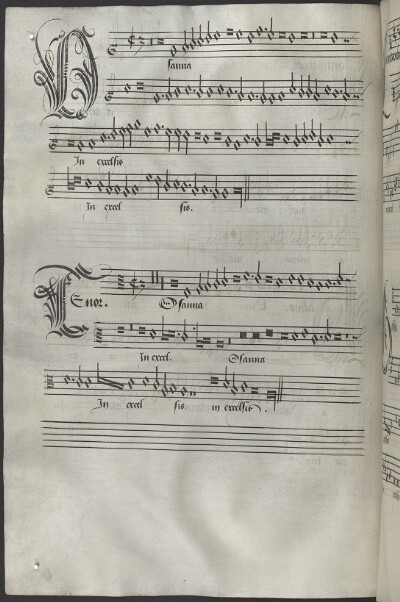 Osanna
In excelsis
In excel sis.
Tenor. Osanna
In excel. Osanna
In excel sis. in excelsis.